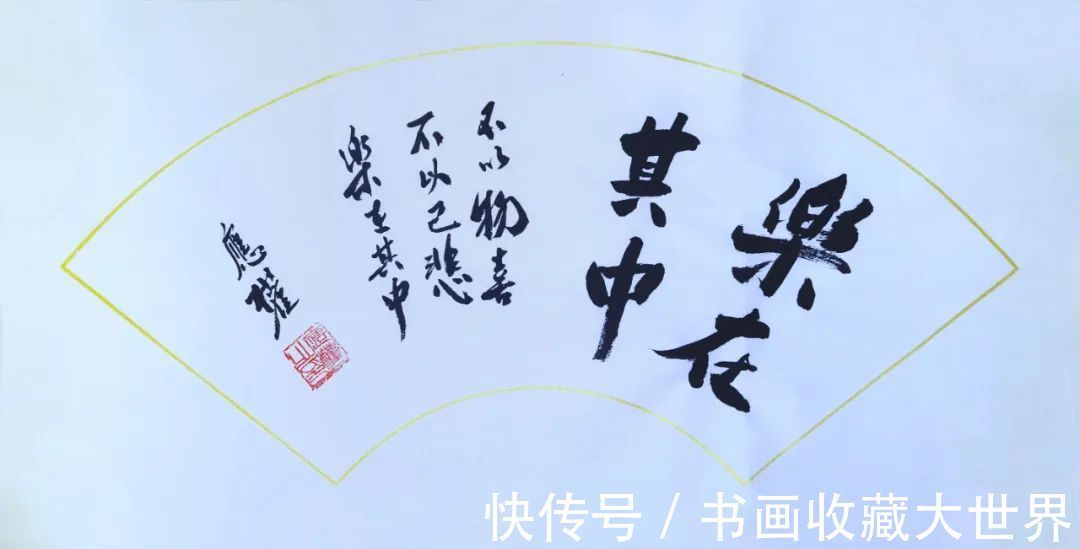 樂在
其中
不以物喜
不以己悲
樂在其中
應
快传号 / 书画收藏大世界